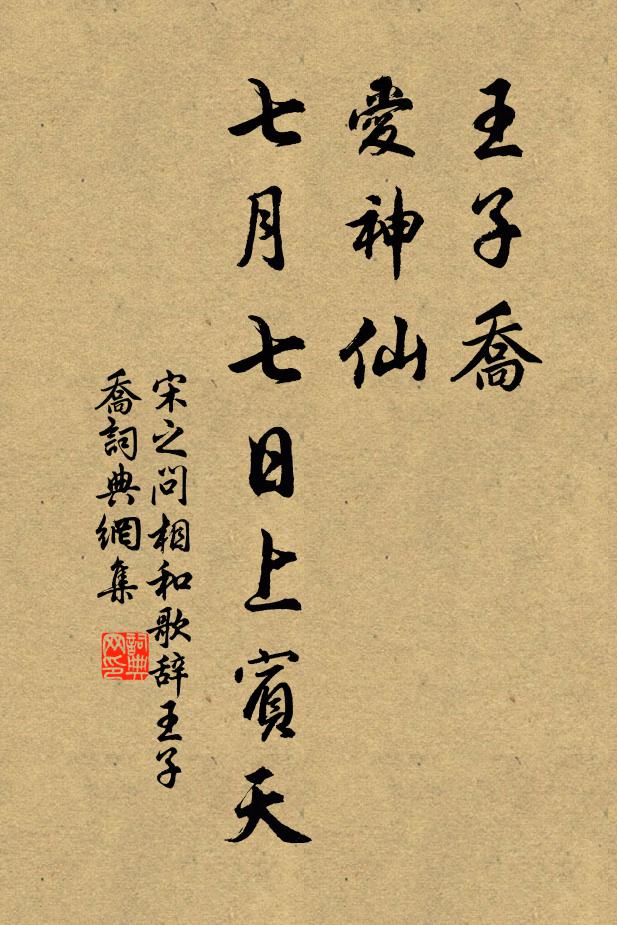 王子喬
愛神仙
七月七日上賓天
宋之问相和歌辞王子
喬詞典網集
詞典
网印